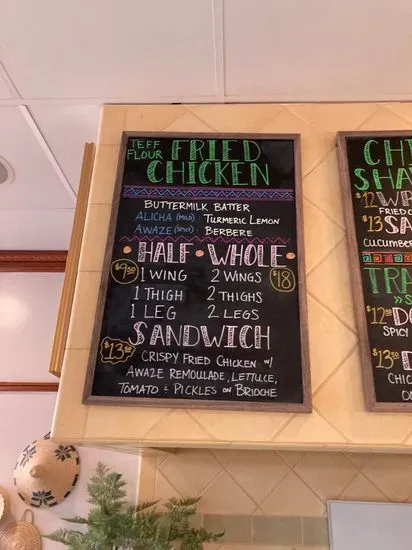 TEFF FLOUR FRIED CHICKEN
BUTTERMILK BATTER
ALICHA (MILD): TURMERIC LEMON
AWAZE (SPICY): BERBERE
HALF • WHOLE •
$9.50 1 WING 2 WINGS $18
1 THIGH 2 THIGHS
1 LEG 2 LEGS
SANDWICH
$13.50 CRISPY FRIED CHICKEN W/
AWAZE REMOULADE, LETTUCE,
TOMATO & PICKLES ON BRIOCHE
SHA
$12
FRIED
$13 SA
CUCUMBER
TRA
$12.50
SPICY
$13.50
CHIC